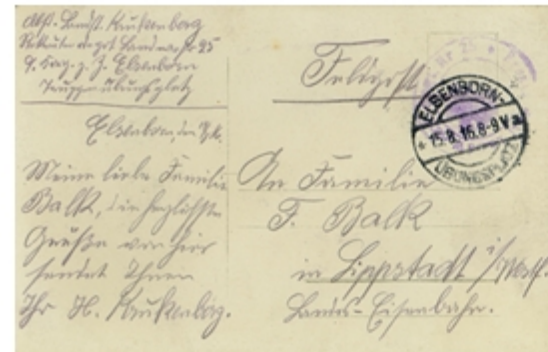 Abs. Landst. Krukenberg
Rekruten depot Landw. Nr 25
z. Z. Elsenborn
Truppenübungsplatz
Elsenborn, den
Meine liebe Familie
Balk, die herzlichsten
Grüße von hier
sendet Ihnen
Ihr H. Krukenberg.
Feldpost
ELSENBORN-
* 15.8.16.8-9V a
ÜBUNGSPLATZ
An Familie
F. Balk
in Lippstadt i/Westf.
Landes-Eisenbahn.